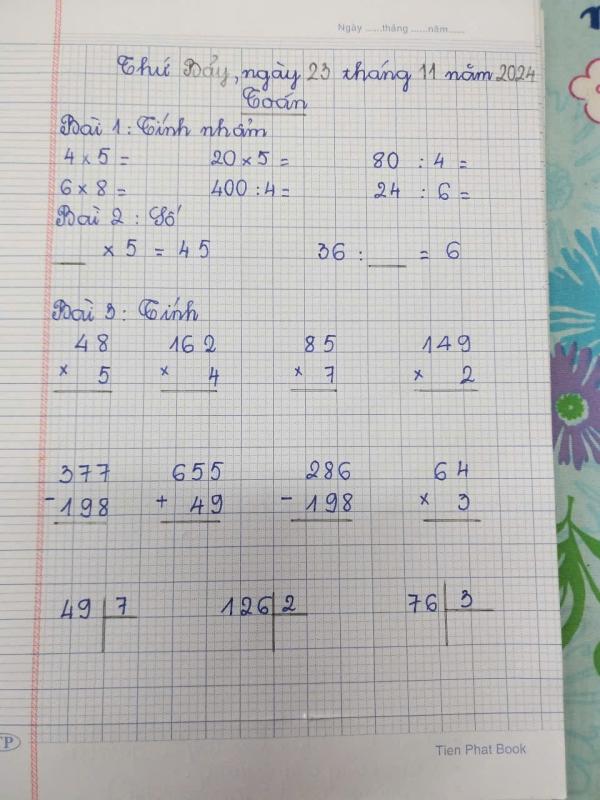 Ngày ......tháng ......năm......
Thứ Bảy, ngày 23 tháng 11 năm 2024
Toán
Bài 1 : Tính nhẩm
4 × 5 = 20 × 5 = 80 : 4 =
6 × 8 = 400 : 4 = 24 : 6 =
Bài 2 : Số
__ × 5 = 45 36 : __ = 6
Bài 3 : Tính
48 162 85 149
× 5 × 4 × 7 × 2
377 655 286 64
- 198 + 49 - 198 × 3
49 7 126 2 76 3
TP
Tien Phat Book